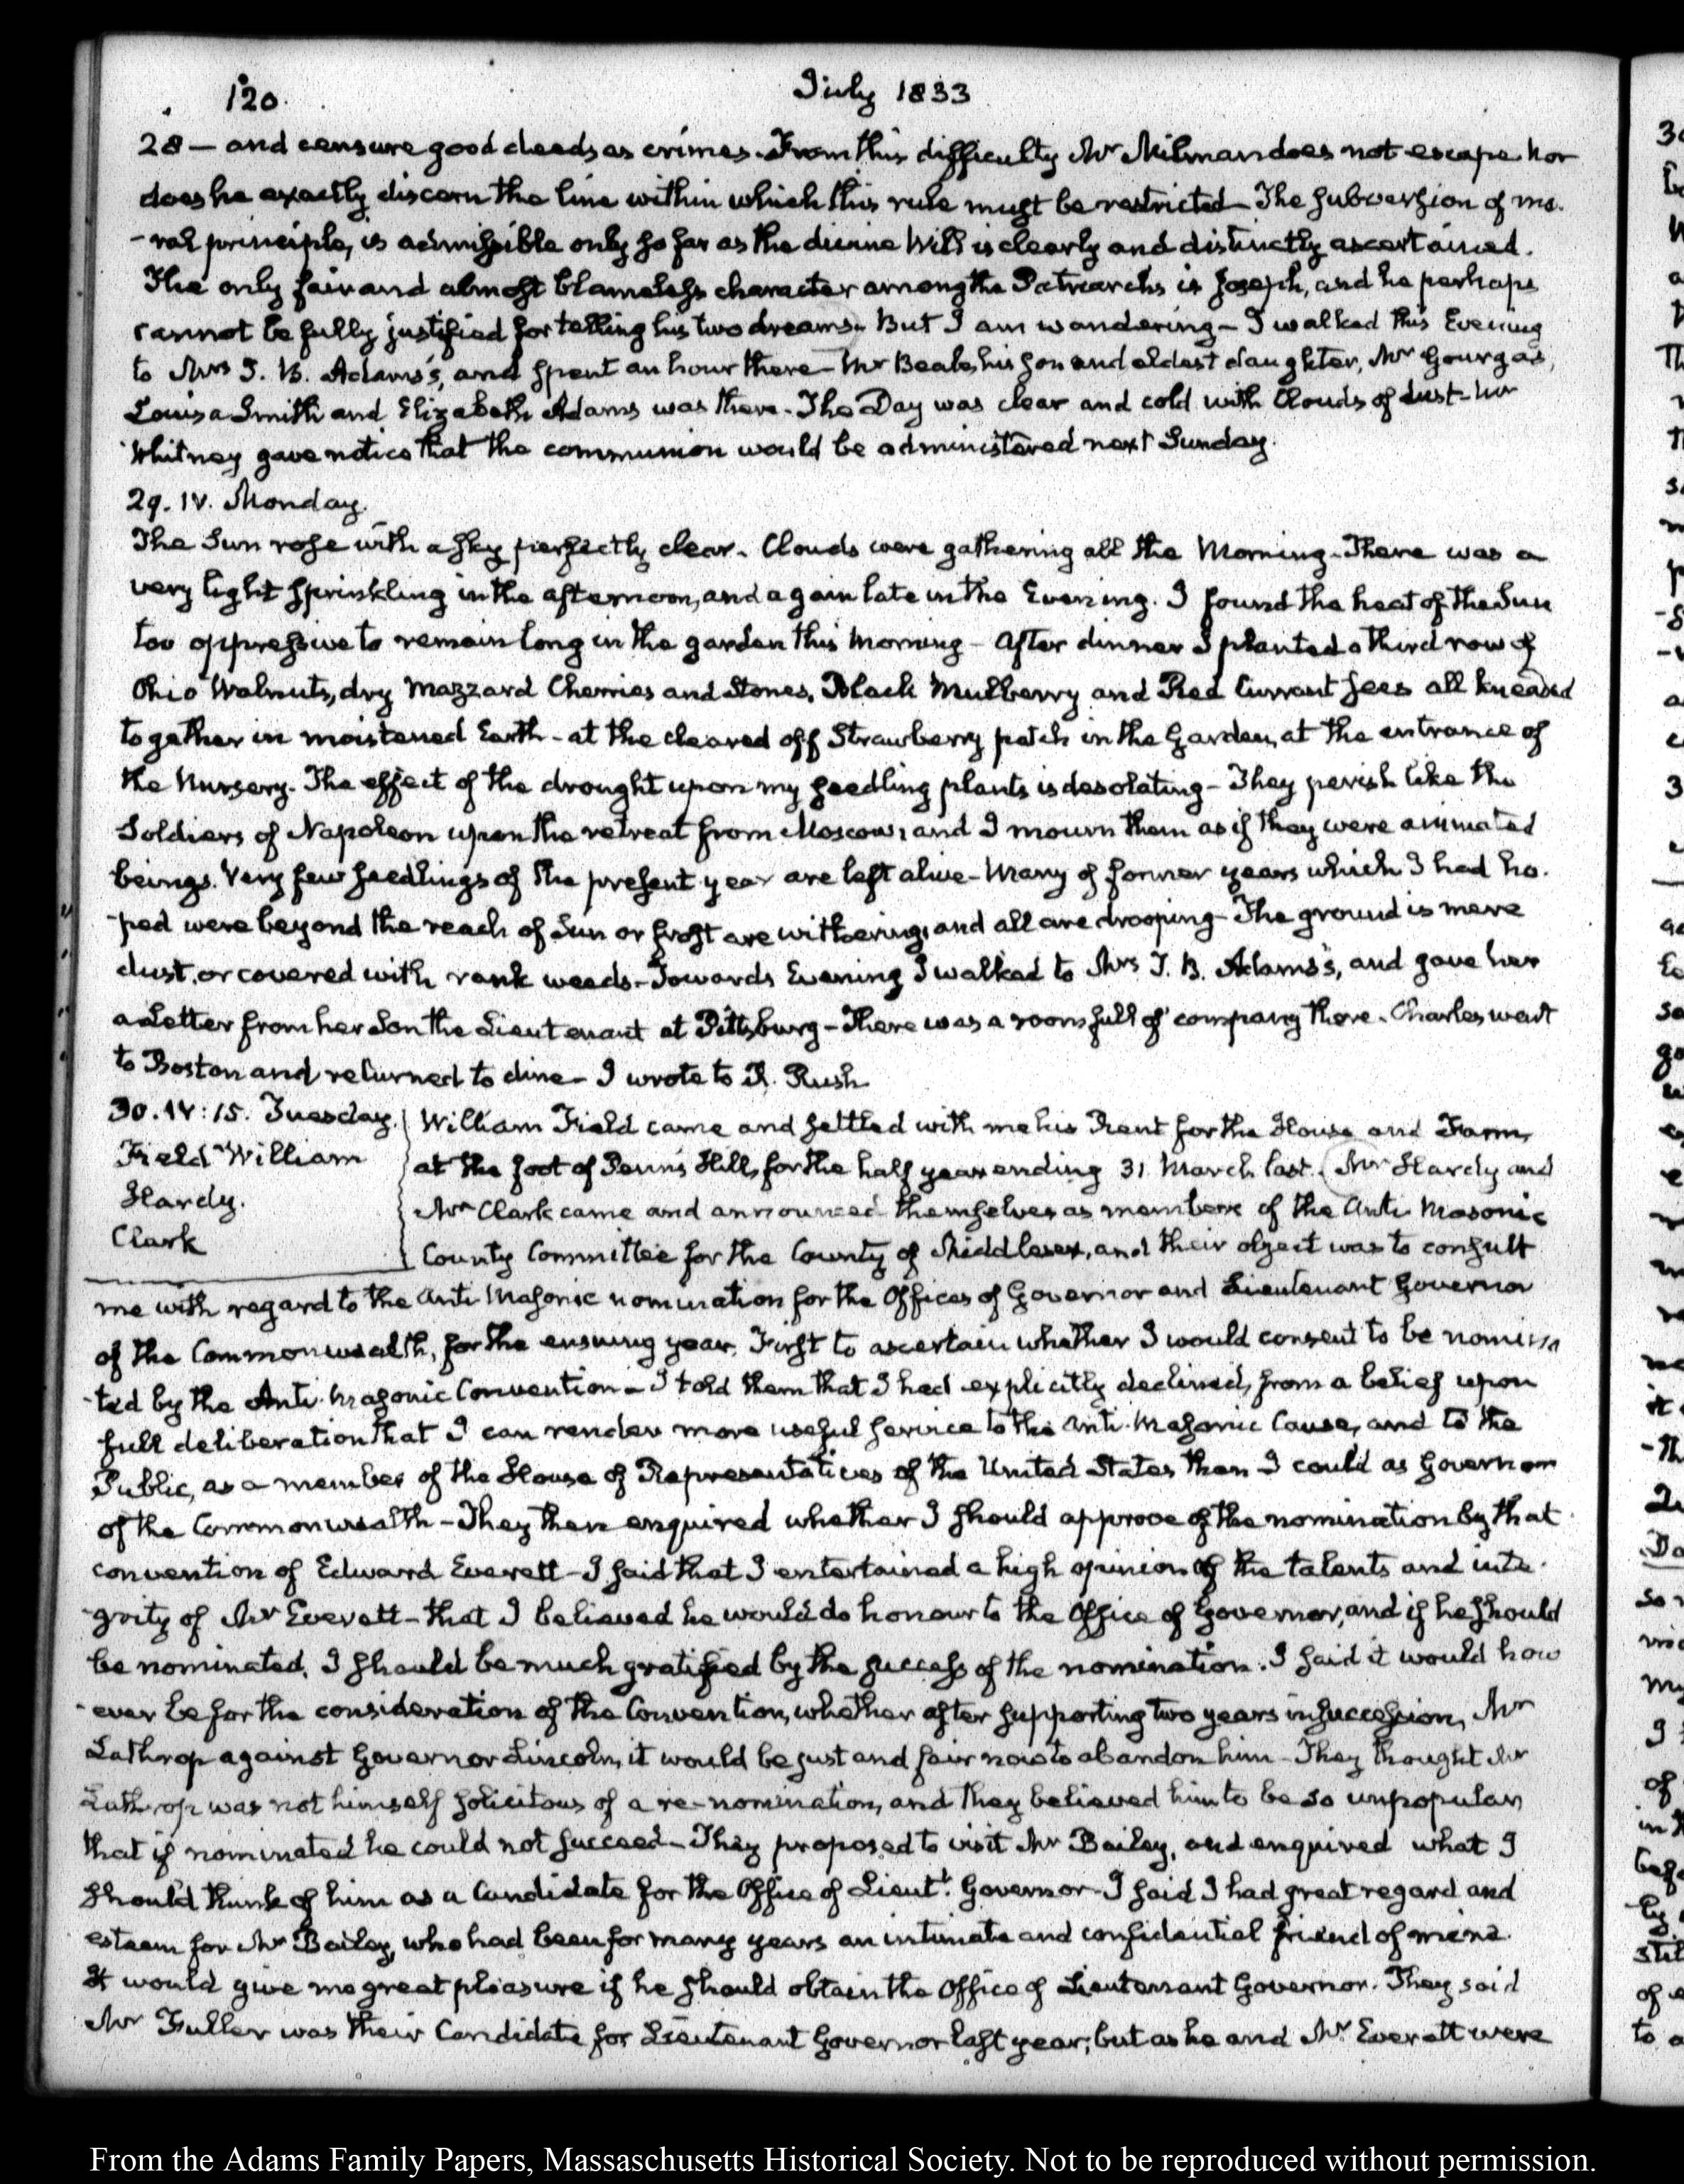 120.
July 1833
28 — and censure good deeds as crimes. From this difficulty Mr Milman does not escape nor
does he exactly discern the line within which this rule must be restricted — The subversion of mo-
-ral principle, is admissible only so far as the divine Will is clearly and distinctly ascertained.
The only fair and almost blameless character among the Patriarchs is Joseph, and he perhaps
cannot be fully justified for telling his two dreams — But I am wandering — I walked this Evening
to Mrs T. B. Adams's, and spent an hour there — Mr Beale, his son and eldest daughter, Mr Gourgas,
Louisa Smith and Elizabeth Adams was there. The Day was clear and cold with Clouds of dust — Mr
Whitney gave notice that the communion would be administered next Sunday.
29. IV. Monday.
The Sun rose with a sky perfectly clear. Clouds were gathering all the Morning — There was a
very light sprinkling in the afternoon, and again late in the Evening. I found the heat of the Sun
too oppressive to remain long in the garden this Morning — After dinner I planted a third row of
Ohio Walnuts, dry Mazzard Cherries and Stones, Black Mulberry and Red Currant sees all kneaded
together in moistened Earth — at the cleared off Strawberry patch in the Garden, at the entrance of
the Nursery. The effect of the drought upon my seedling plants is desolating — They perish like the
Soldiers of Napoleon upon the retreat from Moscow, and I mourn them as if they were animated
beings. Very few seedlings of the present year are left alive — Many of former years which I had ho-
-ped were beyond the reach of Sun or frost are withering, and all are drooping — The ground is mere
dust, or covered with rank weeds — Towards Evening I walked to Mrs T. B. Adams's, and gave her
a Letter from her Son the Lieutenant at Pittsburg — There was a room full of company there. Charles went
to Boston and returned to dine — I wrote to R. Rush
30. IV:15. Tuesday.
Field William
Hardy.
Clark
William Field came and settled with me his Rent for the House and Farm,
at the foot of Penn's Hill, for the half year ending 31. March last. Mr Hardy and
Mr Clark came and announced themselves as members of the Anti Masonic
County Committee for the County of Middlesex, and their object was to consult
me with regard to the Anti Masonic nomination for the Offices of Governor and Lieutenant Governor
of the Commonwealth, for the ensuing year. First to ascertain whether I would consent to be nomina
-ted by the Anti-Masonic Convention — I told them that I had explicitly declined, from a belief upon
full deliberation that I can render more useful service to the Anti-Masonic Cause, and to the
Public, as a member of the House of Representatives of the United States than I could as Governor
of the Commonwealth — They then enquired whether I should approve of the nomination by that
convention of Edward Everett — I said that I entertained a high opinion of the talents and inte-
-grity of Mr Everett — that I believed he would do honour to the Office of Governor, and if he should
be nominated, I should be much gratified by the success of the nomination. I said it would how
-ever be for the consideration of the Convention, whether after supporting two years in succession, Mr
Lathrop against Governor Lincoln, it would be just and fair now to abandon him — They thought Mr
Lathrop was not himself solicitous of a re-nomination, and they believed him to be so unpopular,
that if nominated he could not succeed — They proposed to visit Mr Bailey, and enquired what I
should think of him as a Candidate for the Office of Lieut.t Governor — I said I had great regard and
esteem for Mr Bailey, who had been for many years an intimate and confidential friend of mine.
It would give me great pleasure if he should obtain the Office of Lieutenant Governor. They said
Mr Fuller was their Candidate for Lieutenant Governor last year; but as he and Mr Everett were
From the Adams Family Papers, Massachusetts Historical Society. Not to be reproduced without permission.